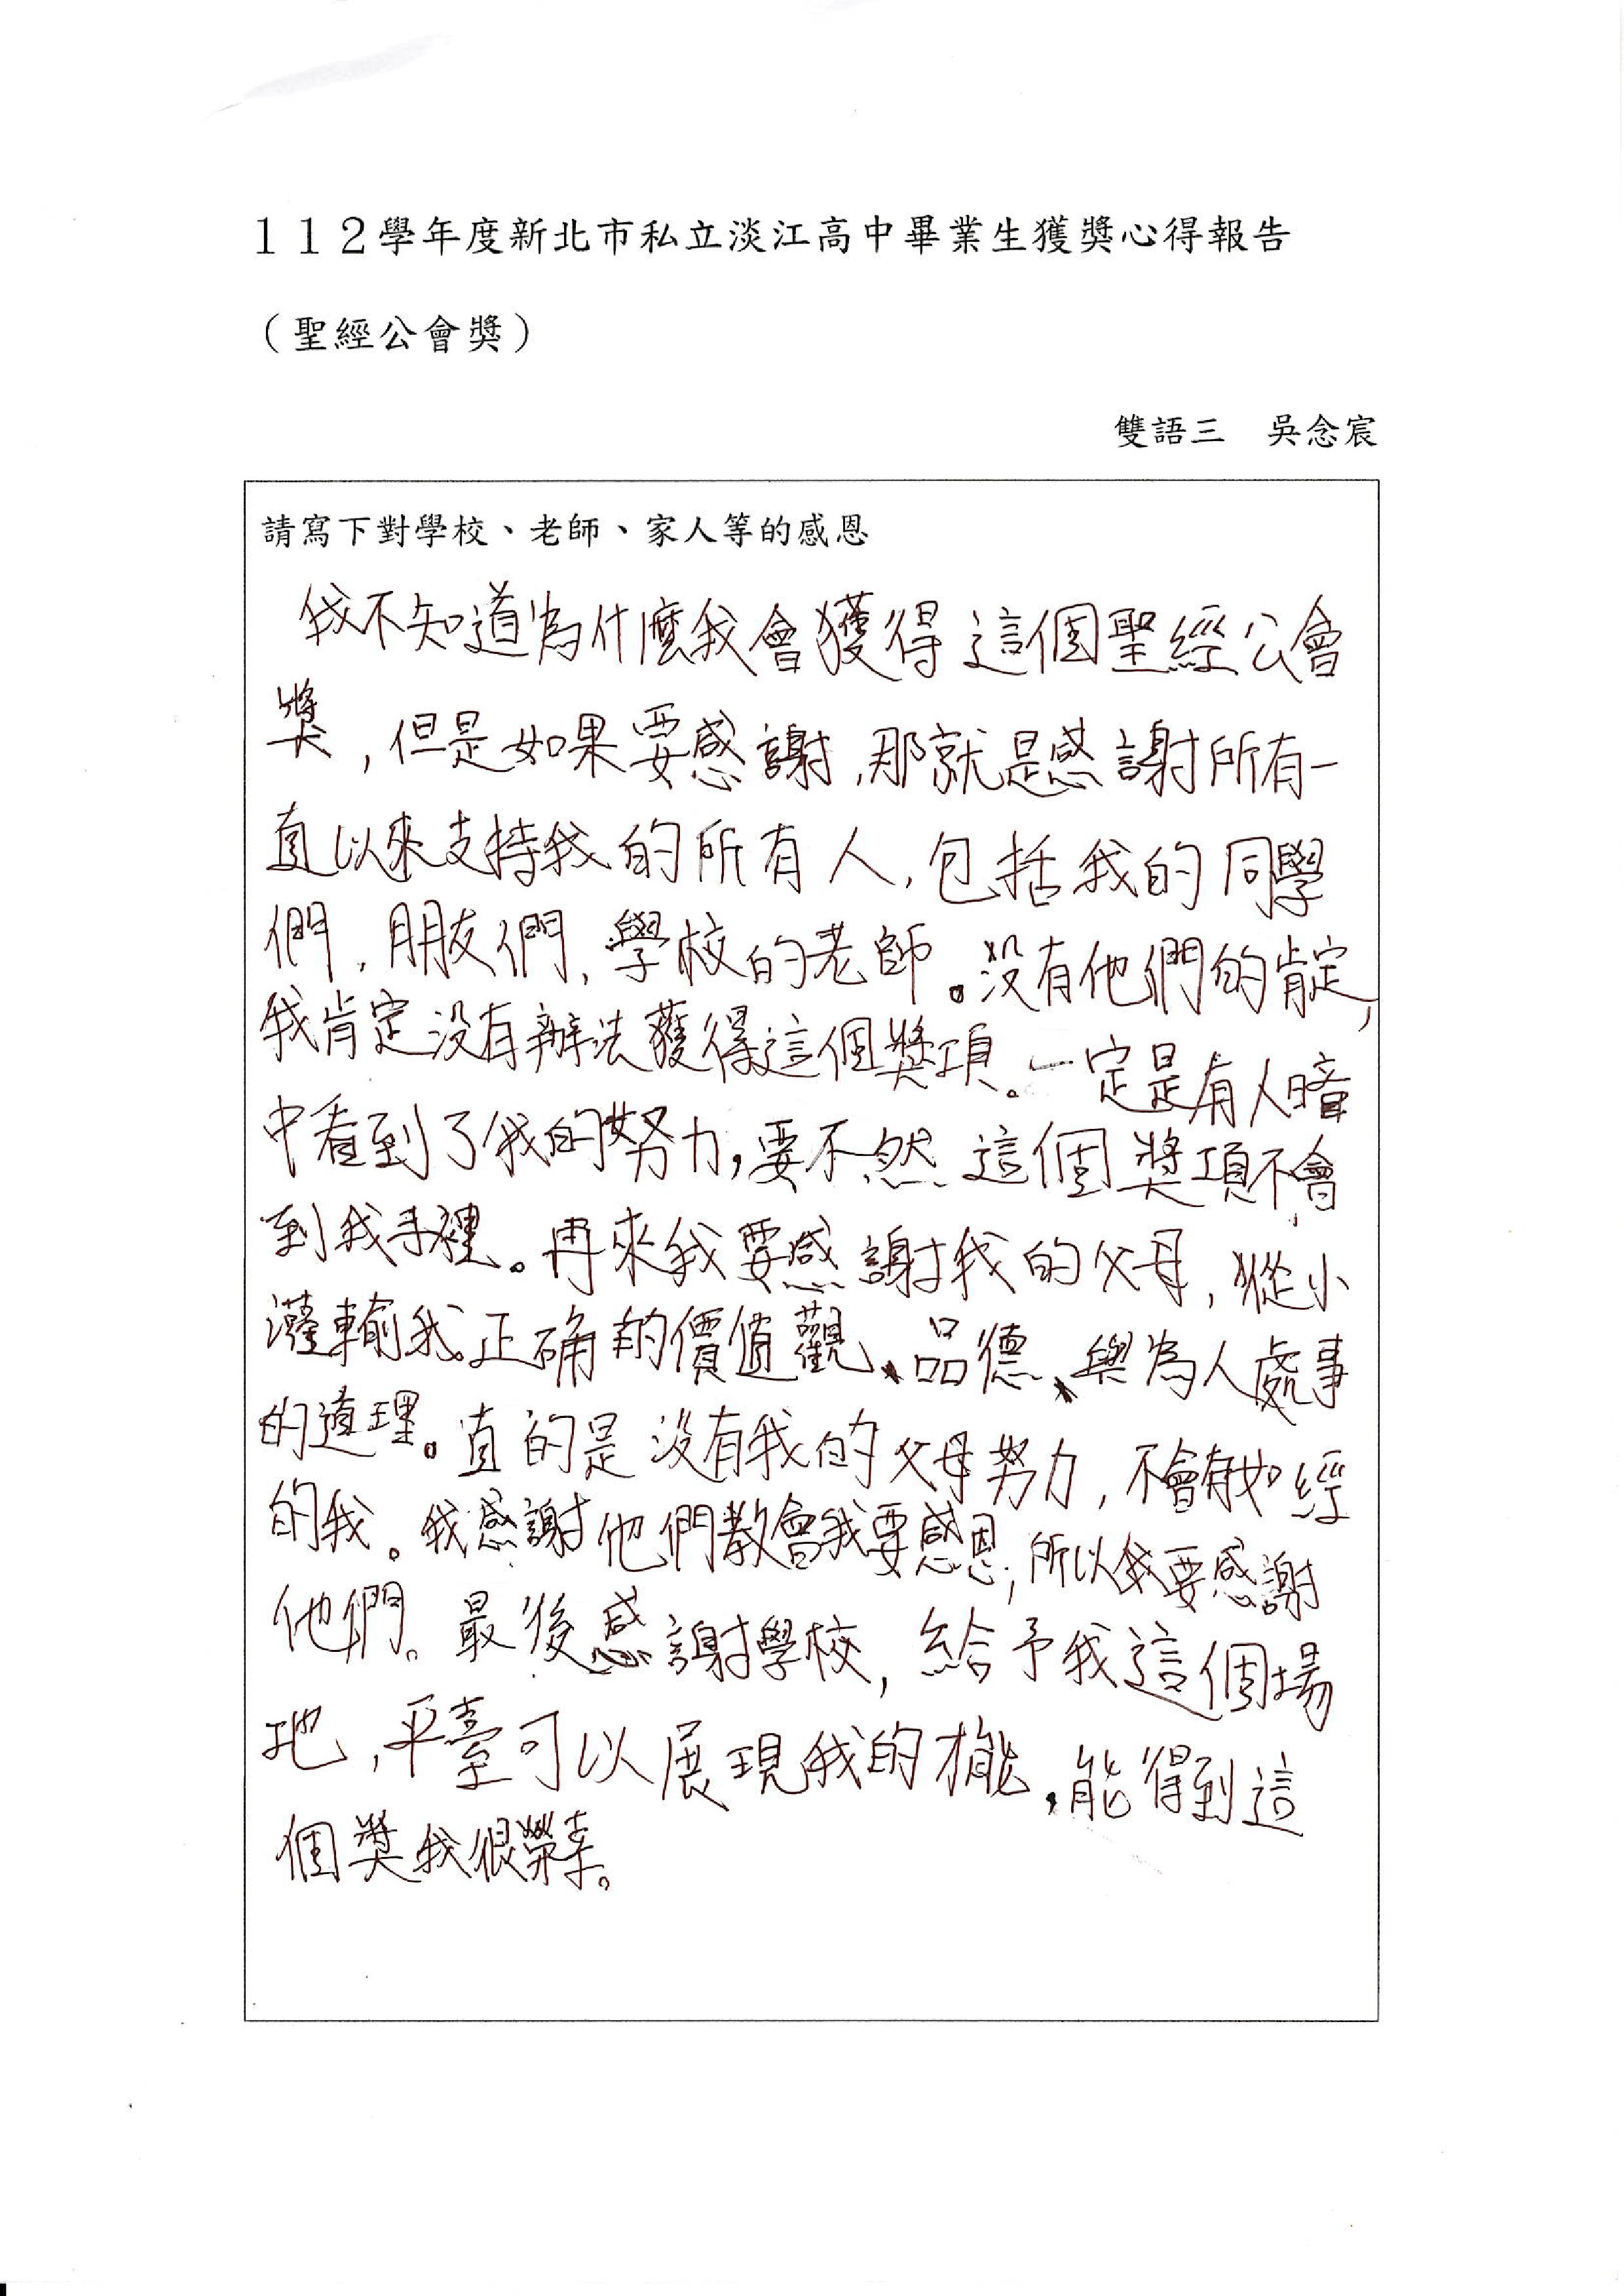 112學年度新北市私立淡江高中畢業生獲獎心得報告
（聖經公會獎）
雙語三　吳念宸
請寫下對學校、老師、家人等的感恩
我不知道為什麼我會獲得這個聖經公會
獎，但是如果要感謝，那就是感謝所有一
直以來支持我的所有人，包括我的同學
們，朋友們，學校的老師。沒有他們的肯定，
我肯定沒有辦法獲得這個獎項。一定是有人暗
中看到了我的努力，要不然這個獎項不會
到我手裡。再來我要感謝我的父母，從小
灌輸我正确的價值觀、品德、與為人處事
的道理。真的是沒有我的父母努力，不會有如經
的我。我感謝他們教會我要感恩，所以我要感謝
他們。最後感謝學校，給予我這個場
地，平臺可以展現我的才能，能得到這
個獎我很榮幸。